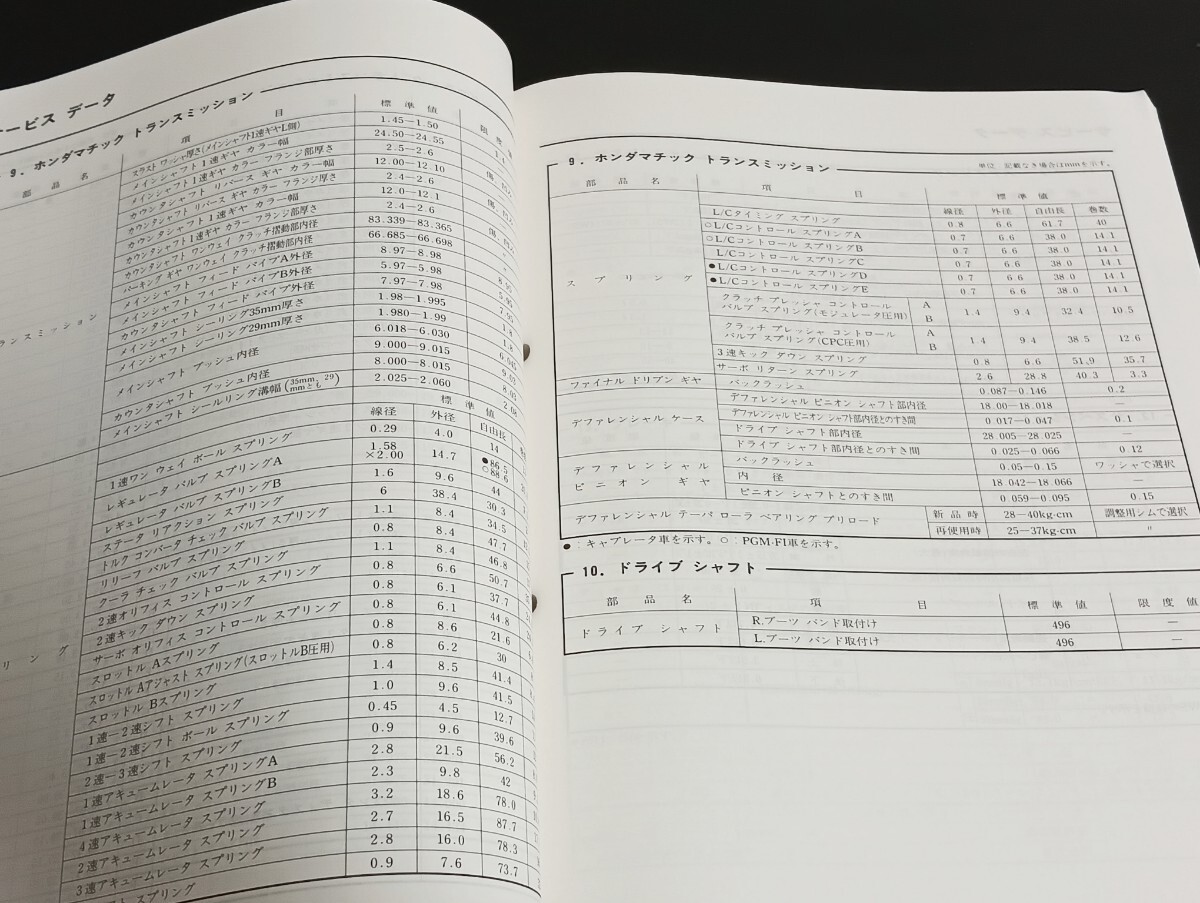 ービス データ
9. ホンダマチック トランスミッション
部品名 項 目 標準値 限度
スラスト ワッシャ厚さ(メインシャフト1速ギヤL側) 1.45−1.50
メインシャフト1速ギヤ カラー幅 24.50−24.55
メインシャフト1速ギヤ カラー フランジ部厚さ 2.5−2.6
カウンタシャフト リバース ギヤ カラー幅 12.00−12.10
カウンタシャフト リバース ギヤ カラー フランジ厚さ 2.4−2.6
カウンタシャフト1速ギヤ カラー幅 12.0−12.1
カウンタシャフト1速ギヤ カラー フランジ部厚さ 2.4−2.6
カウンタシャフト ワンウェイ クラッチ摺動部内径 83.339−83.365
パーキング ギヤ ワンウェイ クラッチ摺動部内径 66.685−66.698
メインシャフト フィード パイプA外径 8.97−8.98 8.95
メインシャフト フィード パイプB外径 5.97−5.98 5.95
カウンタシャフト フィード パイプ外径 7.97−7.98 7.95
メインシャフト シーリング35mm厚さ 1.98−1.995 1.8
メインシャフト シーリング29mm厚さ 1.980−1.99 1.8
ランスミッション
メインシャフト ブッシュ内径 6.018−6.030 6.045
9.000−9.015 9.03
カウンタシャフト ブッシュ内径 8.000−8.015 8.03
メインシャフト シールリング溝幅(35mm、29mmとも) 2.025−2.060 2.08
標準値
線径 外径 自由長
1速ワン ウェイ ボール スプリング 0.29 4.0 14
レギュレータ バルブ スプリングA 1.58×2.00 14.7 ●86.5 ○88.6
レギュレータ バルブ スプリングB 1.6 9.6 44
ステータ リアクション スプリング 6 38.4 30.3
トルク コンバータ チェック バルブ スプリング 1.1 8.4 34.5
リリーフ バルブ スプリング 0.8 8.4 47.7
クーラ チェック バルブ スプリング 1.1 8.4 46.8
2速オリフィス コントロール スプリング 0.8 6.6 50.7
2速キック ダウン スプリング 0.8 6.1 37.7
サーボ オリフィス コントロール スプリング 0.8 6.1 44.8
リング
スロットル Aスプリング 0.8 8.6 21.6
スロットル Aアジャスト スプリング(スロットルB圧用) 0.8 6.2 30
スロットル Bスプリング 1.4 8.5 41.4
1速−2速シフト スプリング 1.0 9.6 41.5
1速−2速シフト ボール スプリング 0.45 4.5 12.7
2速−3速シフト スプリング 0.9 9.6 39.6
1速アキュームレータ スプリングA 2.8 21.5 56.2
1速アキュームレータ スプリングB 2.3 9.8 42
4速アキュームレータ スプリング 3.2 18.6 78.0
2速アキュームレータ スプリング 2.7 16.5 87.7
3速アキュームレータ スプリング 2.8 16.0 78.3
スプリング 0.9 7.6 73.7
9. ホンダマチック トランスミッション
単位:記載なき場合はmmを示す。
部品名 項目 標準値
線径 外径 自由長 巻数
スプリング
L/Cタイミング スプリング 0.8 6.6 61.7 40
○L/Cコントロール スプリングA 0.7 6.6 38.0 14.1
○L/Cコントロール スプリングB 0.7 6.6 38.0 14.1
L/Cコントロール スプリングC 0.7 6.6 38.0 14.1
●L/Cコントロール スプリングD 0.7 6.6 38.0 14.1
●L/Cコントロール スプリングE 0.7 6.6 38.0 14.1
クラッチ プレッシャ コントロール バルブ スプリング(モジュレータ圧用) A B 1.4 9.4 32.4 10.5
クラッチ プレッシャ コントロール バルブ スプリング(CPC圧用) A B 1.4 9.4 38.5 12.6
3速キック ダウン スプリング 0.8 6.6 51.9 35.7
サーボ リターン スプリング 2.6 28.8 40.3 3.3
ファイナル ドリブン ギヤ バックラッシュ 0.087−0.146 0.2
デファレンシャル ケース
デファレンシャル ピニオン シャフト部内径 18.00−18.018 —
デファレンシャル ピニオン シャフト部内径とのすき間 0.017−0.047 0.1
ドライブ シャフト部内径 28.005−28.025 —
ドライブ シャフト部内径とのすき間 0.025−0.066 0.12
デファレンシャル ピニオン ギヤ
バックラッシュ 0.05−0.15 ワッシャで選択
内径 18.042−18.066 —
ピニオン シャフトとのすき間 0.059−0.095 0.15
デファレンシャル テーパ ローラ ベアリング プリロード 新品時 28−40kg·cm 調整用シムで選択
再使用時 25−37kg·cm 〃
●:キャブレータ車を示す。○:PGM-FI車を示す。
10. ドライブ シャフト
部品名 項目 標準値 限度値
ドライブ シャフト R.ブーツ バンド取付け 496 —
L.ブーツ バンド取付け 496 —